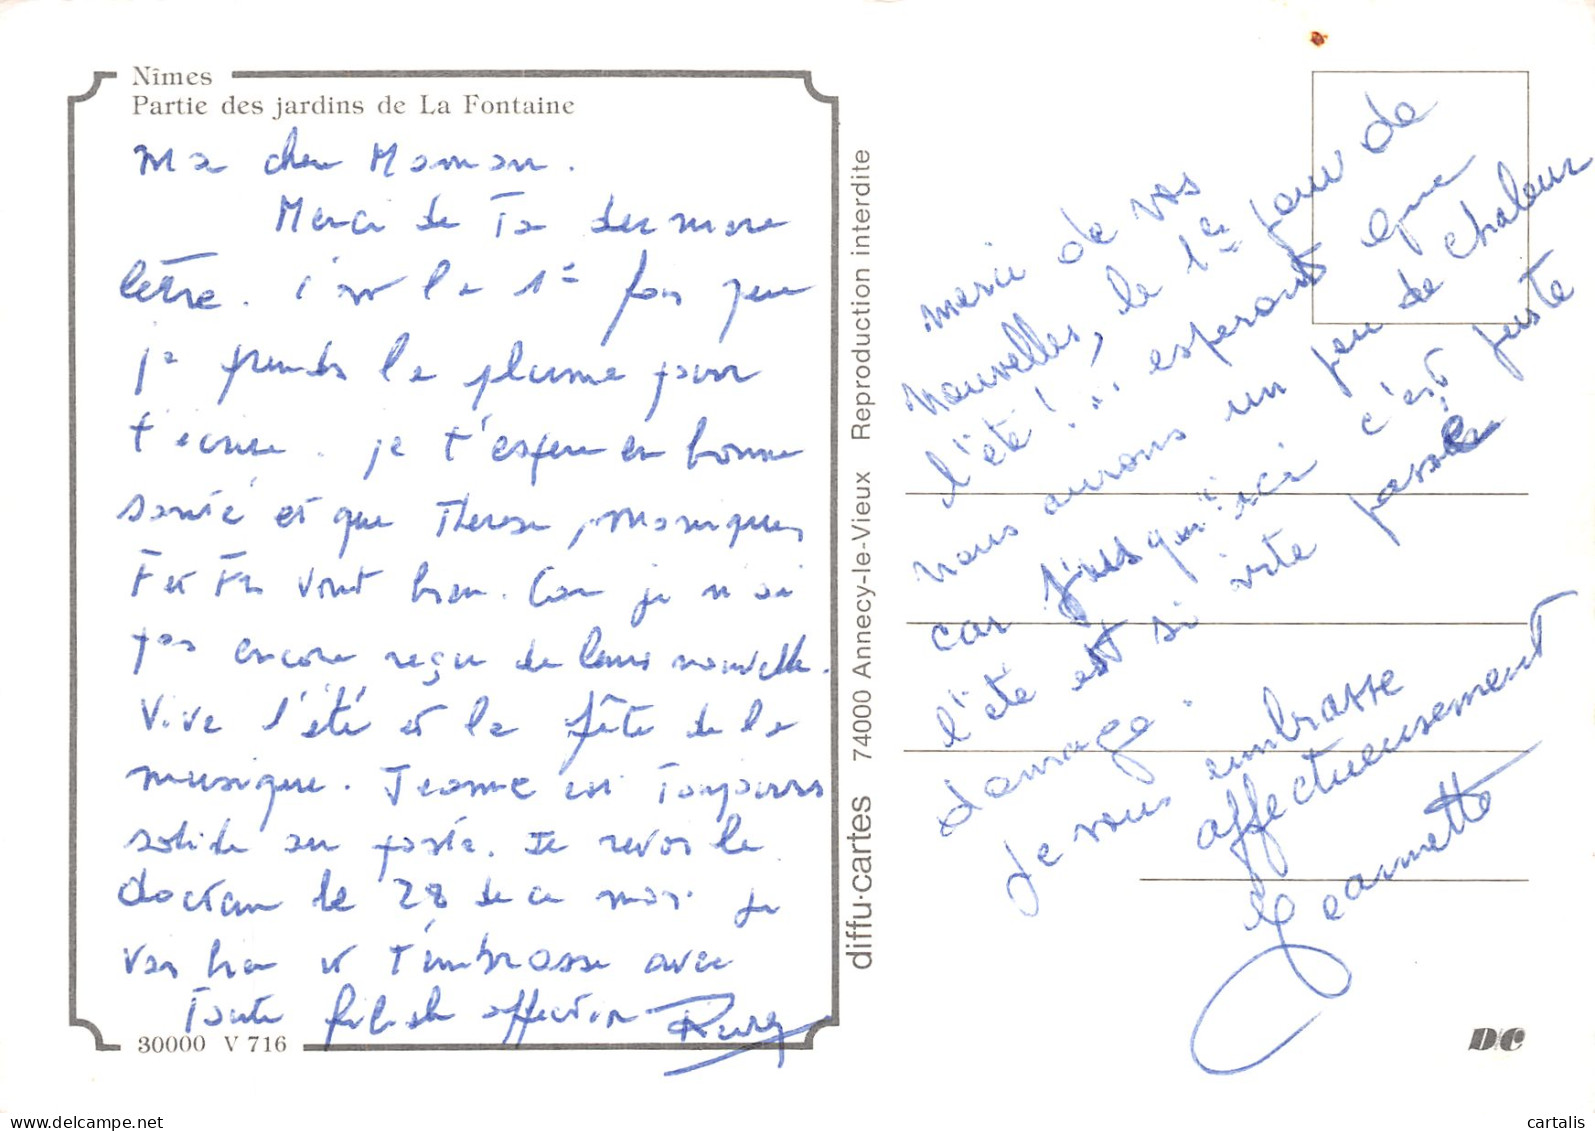 Nîmes
Partie des jardins de La Fontaine
Ma cher Maman.
Merci de Ta dernière
lettre. C'est la 1è fois que
je prends la plume pour
t'écrire. je t'espère en bonne
santé et que Therese, Monique,
F et Fr vont bien. Car je n'ai
pas encore reçu de leurs nouvelle.
Vive l'été et la fête de la
musique. Jeanne est Toujours
solide au poste. Je revois le
docteur le 28 de ce mois. je
vais bien et t'embrasse avec
Toute filiale affection
30000 V 716
diffu·cartes 74000 Annecy-le-Vieux Reproduction interdite
merci de vos
nouvelles, le 1er jour de
l'été!... esperons que
nous aurons un peu de chaleur
car jusqu'ici c'est juste
l'été est si vite passée
dommage.
Je vous embrasse
affectueusement
Jeannette
DC
cartalis
www.delcampe.net